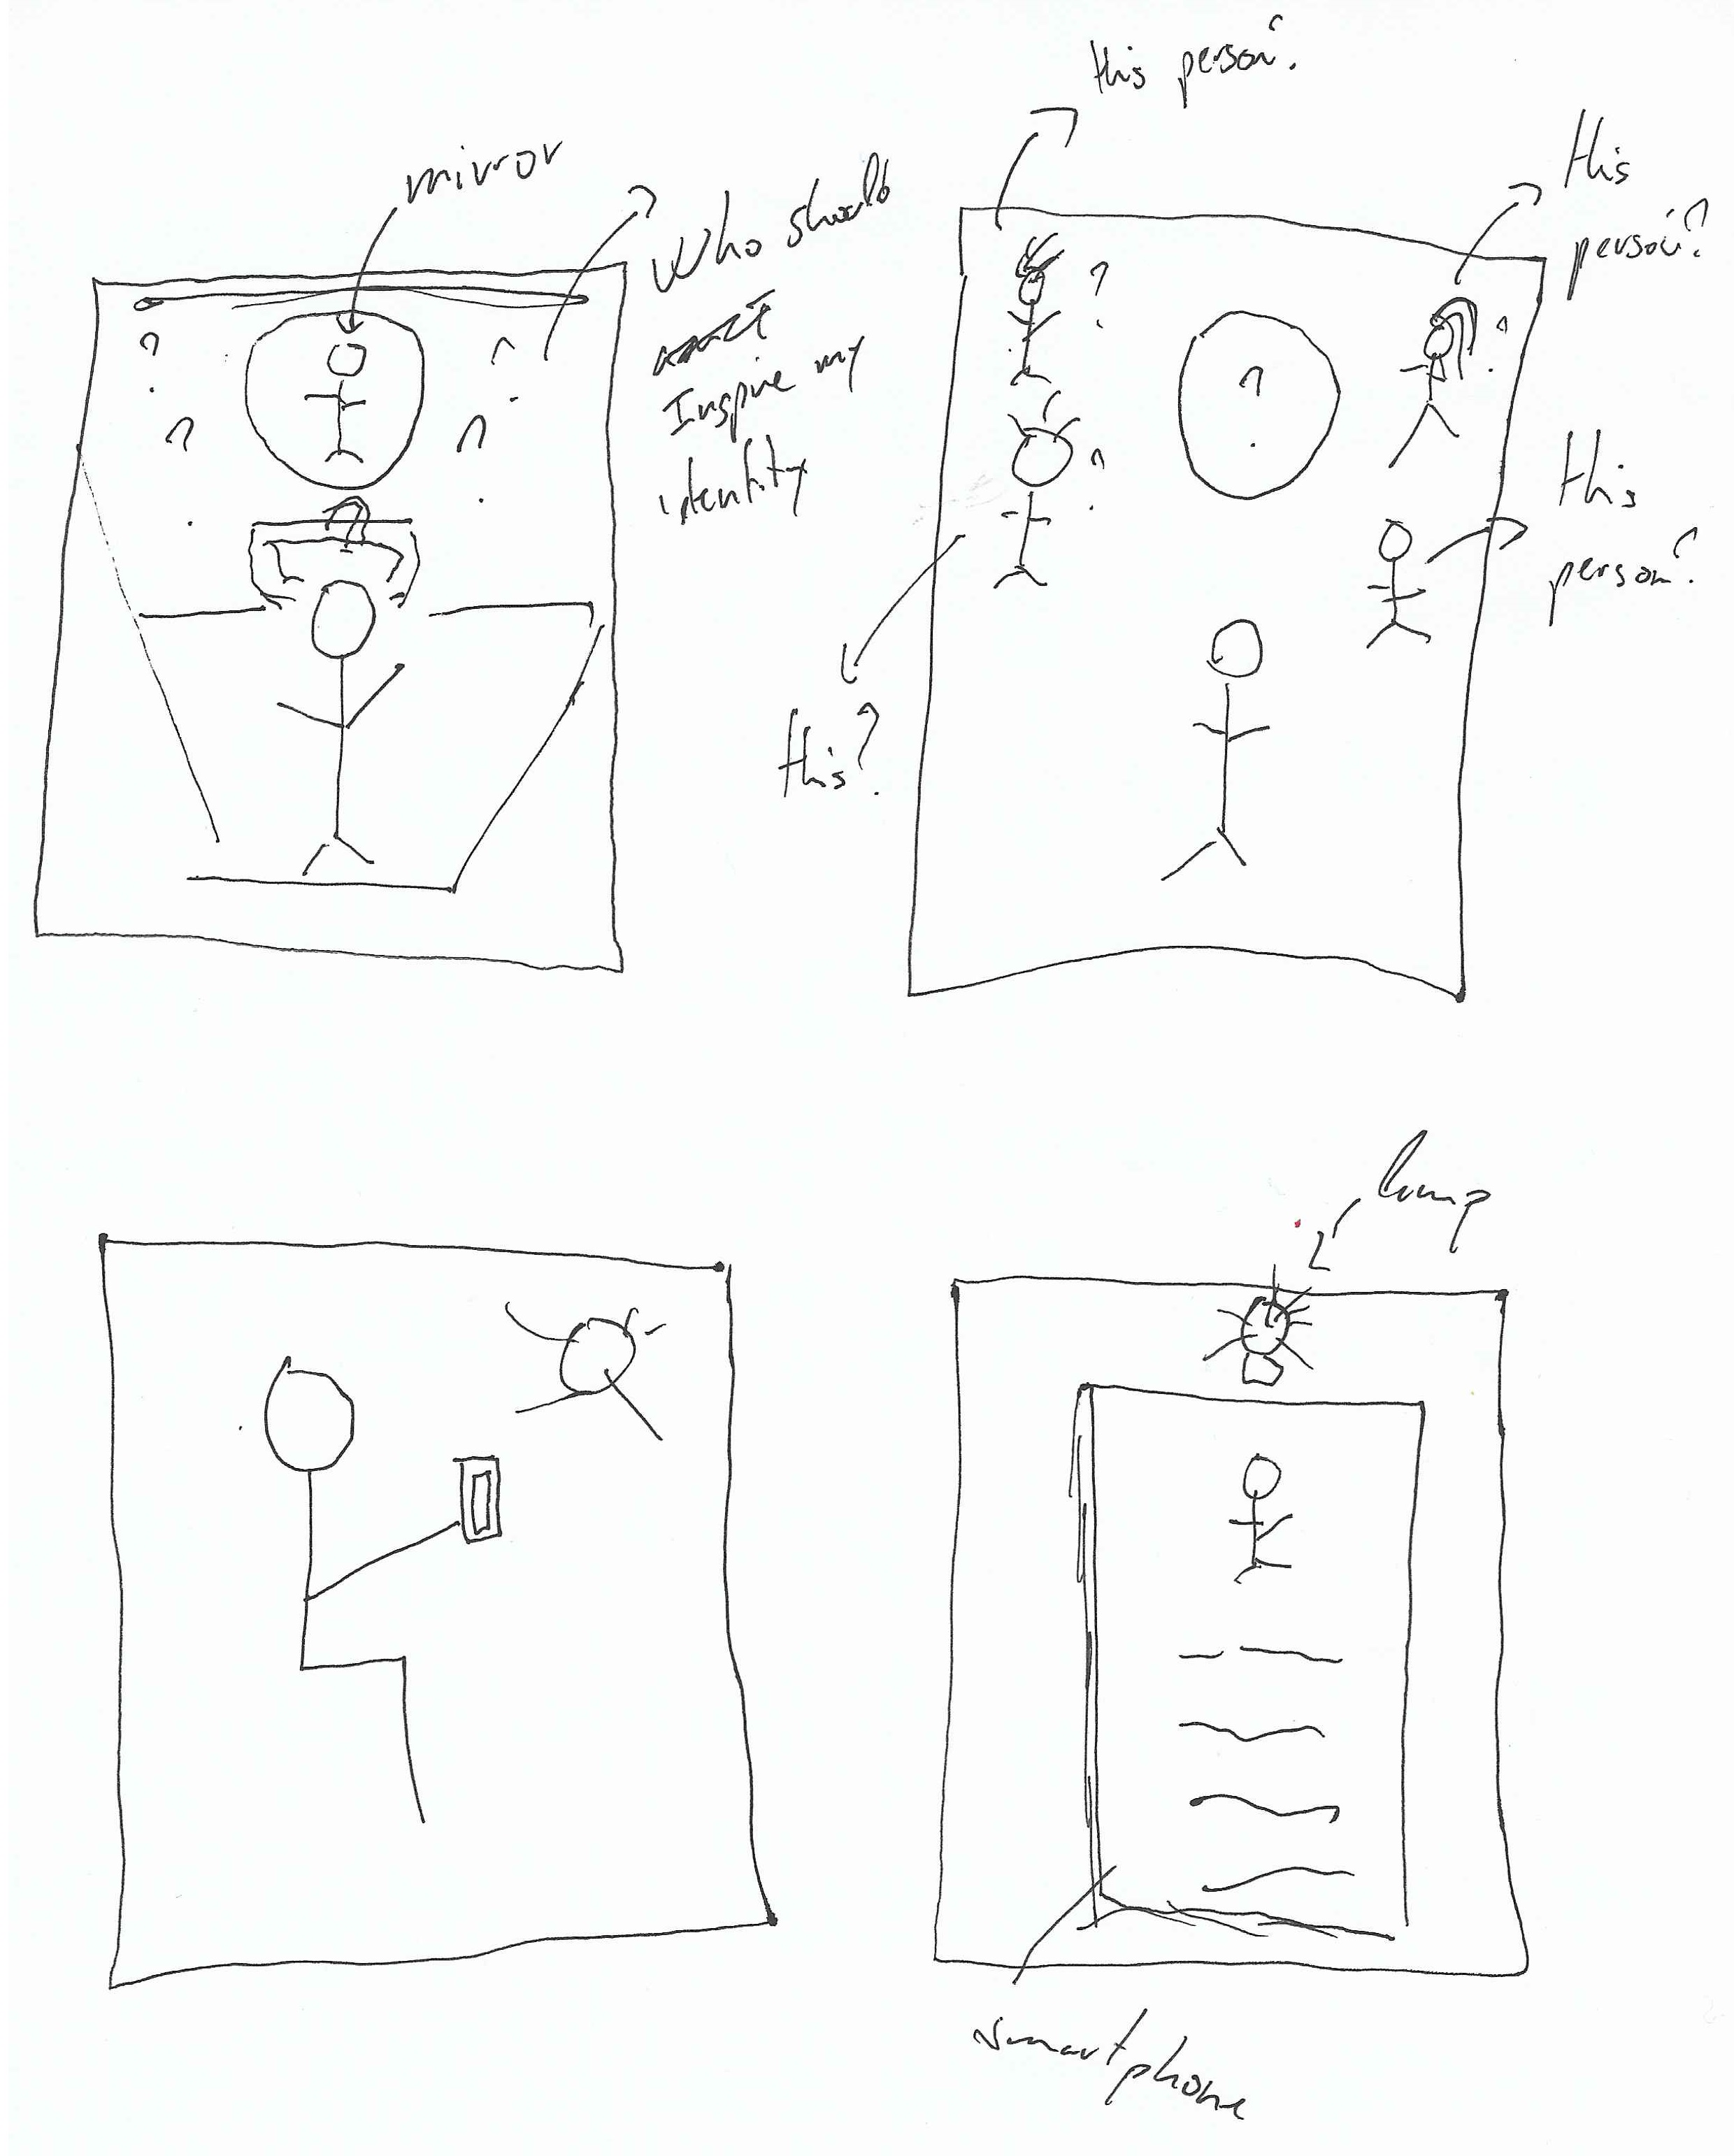 mirror
Who should
Inspire my
identity
this person?
this
person?
this
person?
this?
?
?
?
?
?
?
?
?
lamp
smartphone